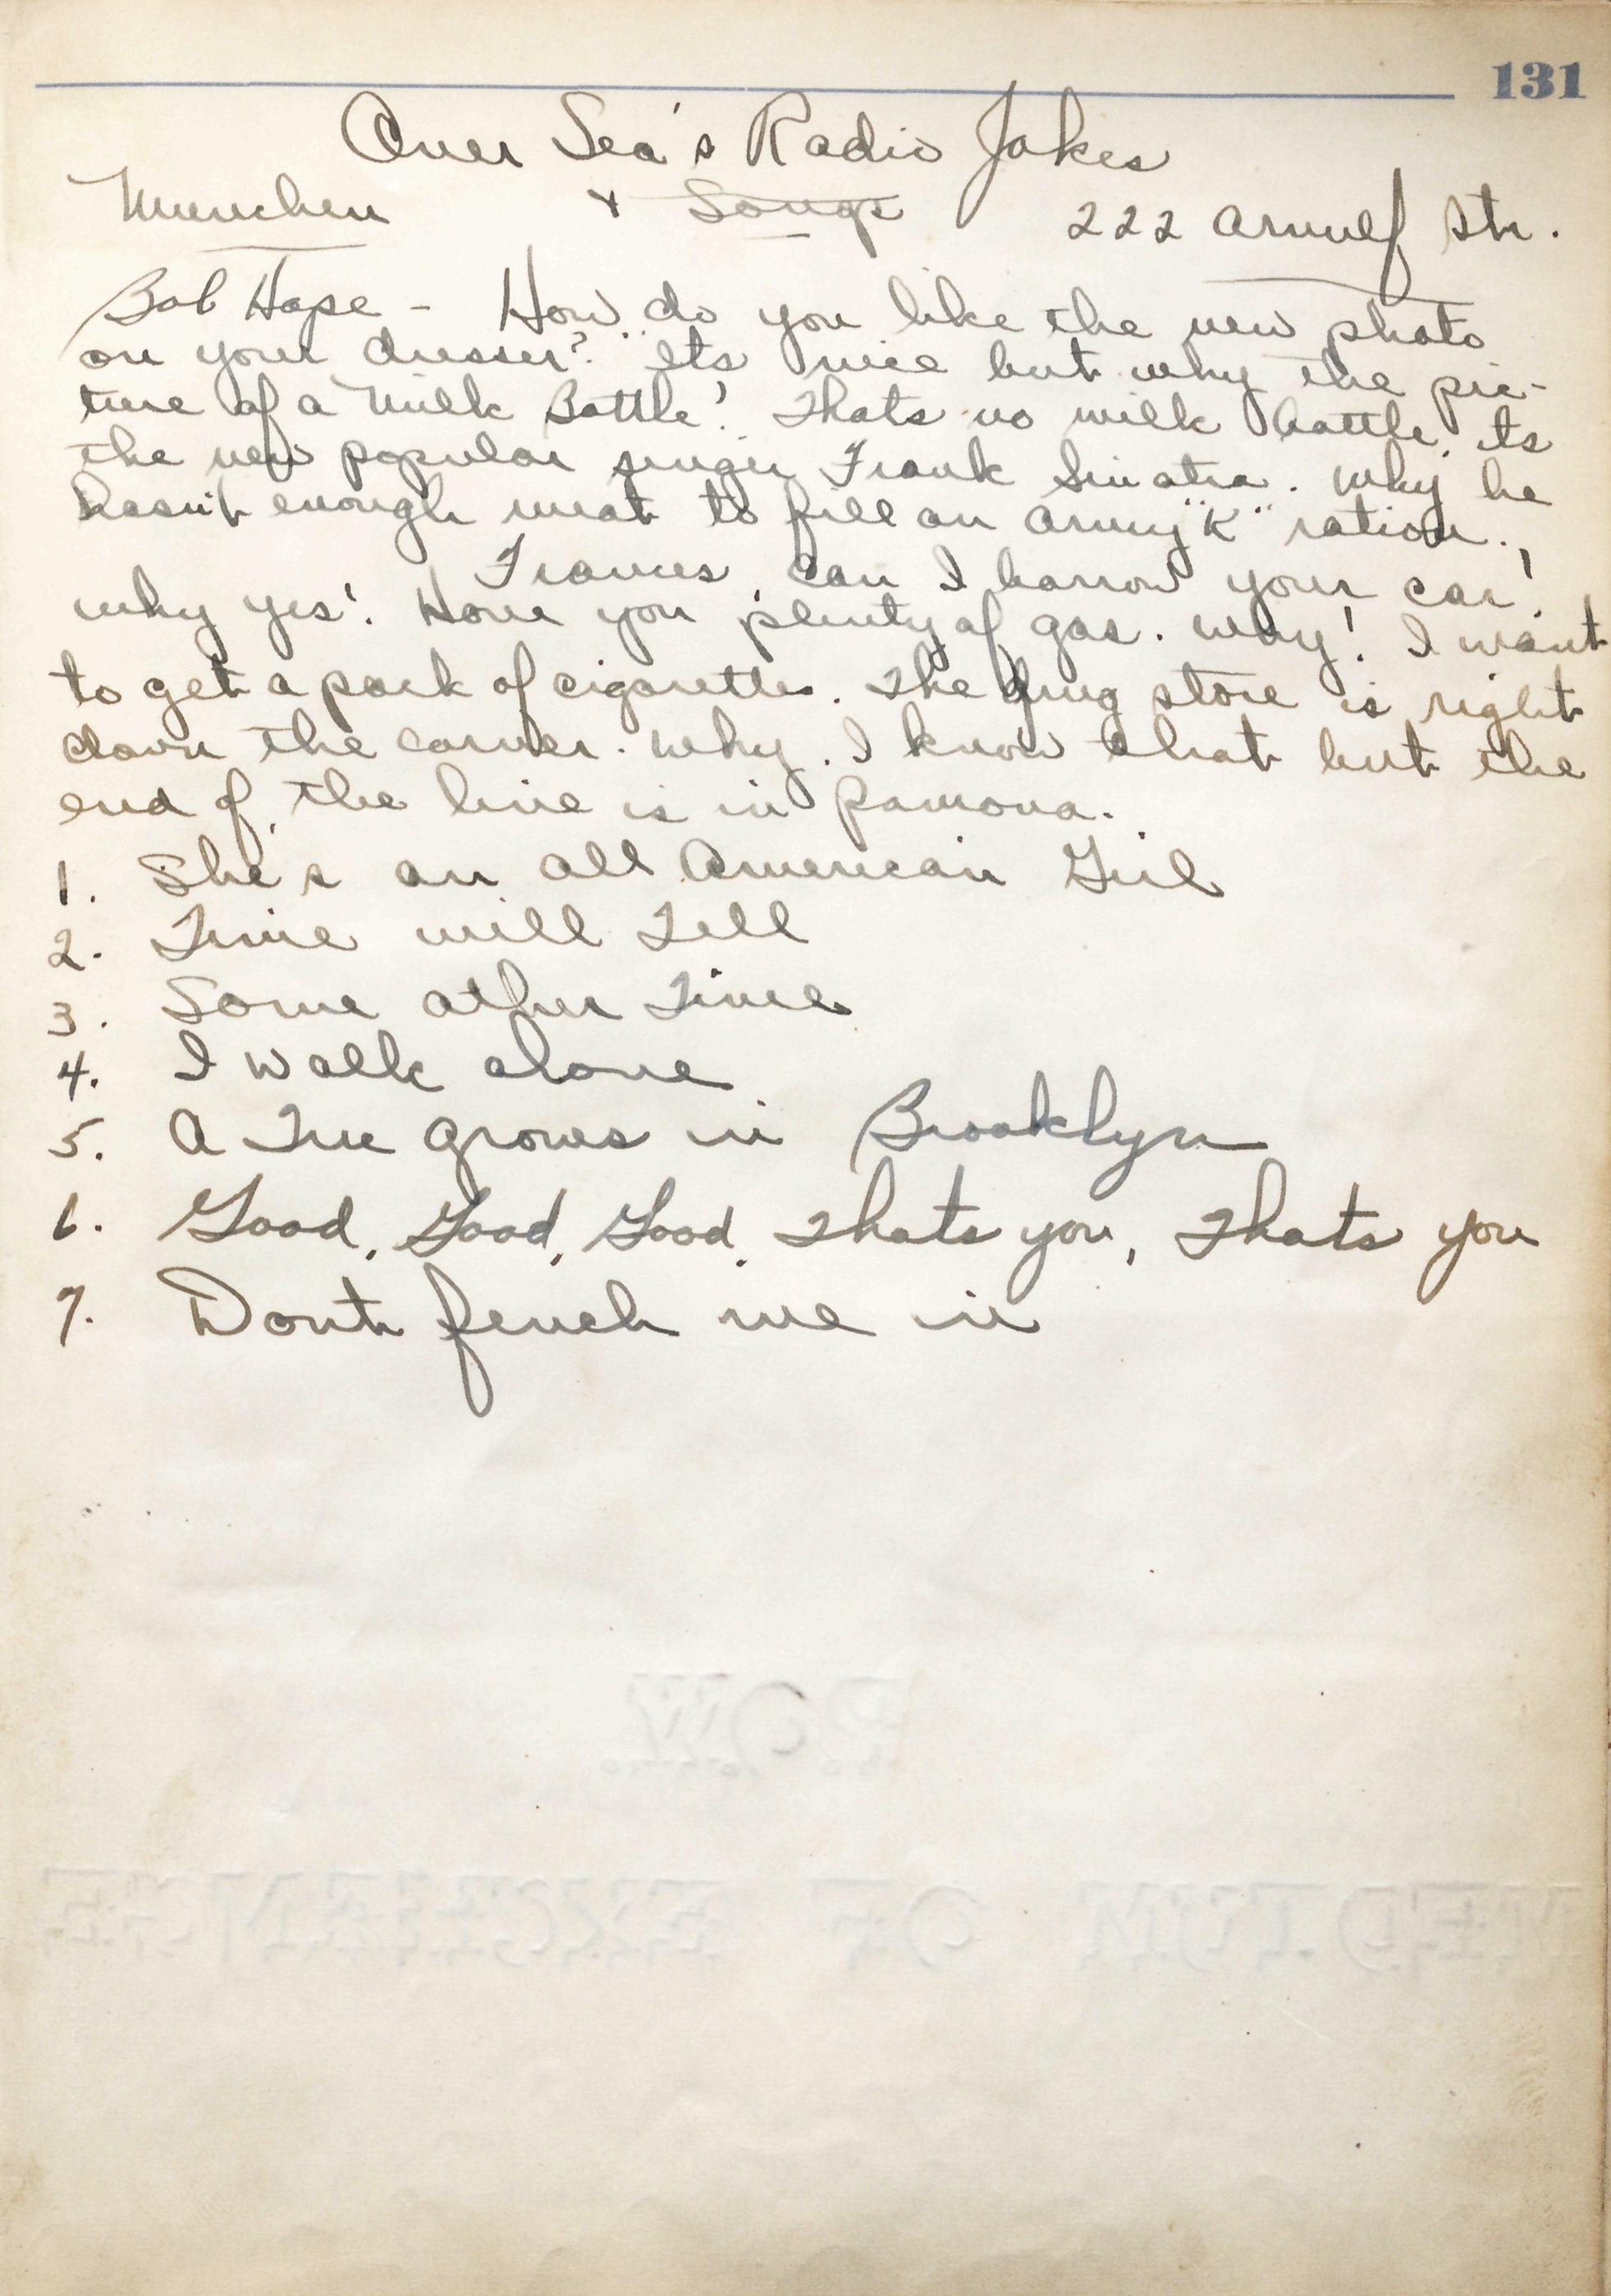 131
Over Sea's Radio Jokes
Muenchen & Songs 222 Arnulf Str.
Bob Hope - How do you like the new photo
on your dresser? Its nice but why the pic-
ture of a Milk Bottle! Thats no milk bottle, its
the new popular singer Frank Sinatra. Why he
hasn't enough meat to fill an Army "K" ration.
Frances, can I borrow your car!
why yes! Have you plenty of gas. Why! I want
to get a pack of cigarettes. The drug store is right
down the corner. Why. I know that but the
end of the line is in Pamona.
1. She's an all American Girl
2. Time will Tell
3. Some other Time
4. I walk alone
5. A Tree grows in Brooklyn
6. Good, Good, Good, Thats you, Thats you
7. Dont fench me in
POW
MEDIUM OF EXCHANGE